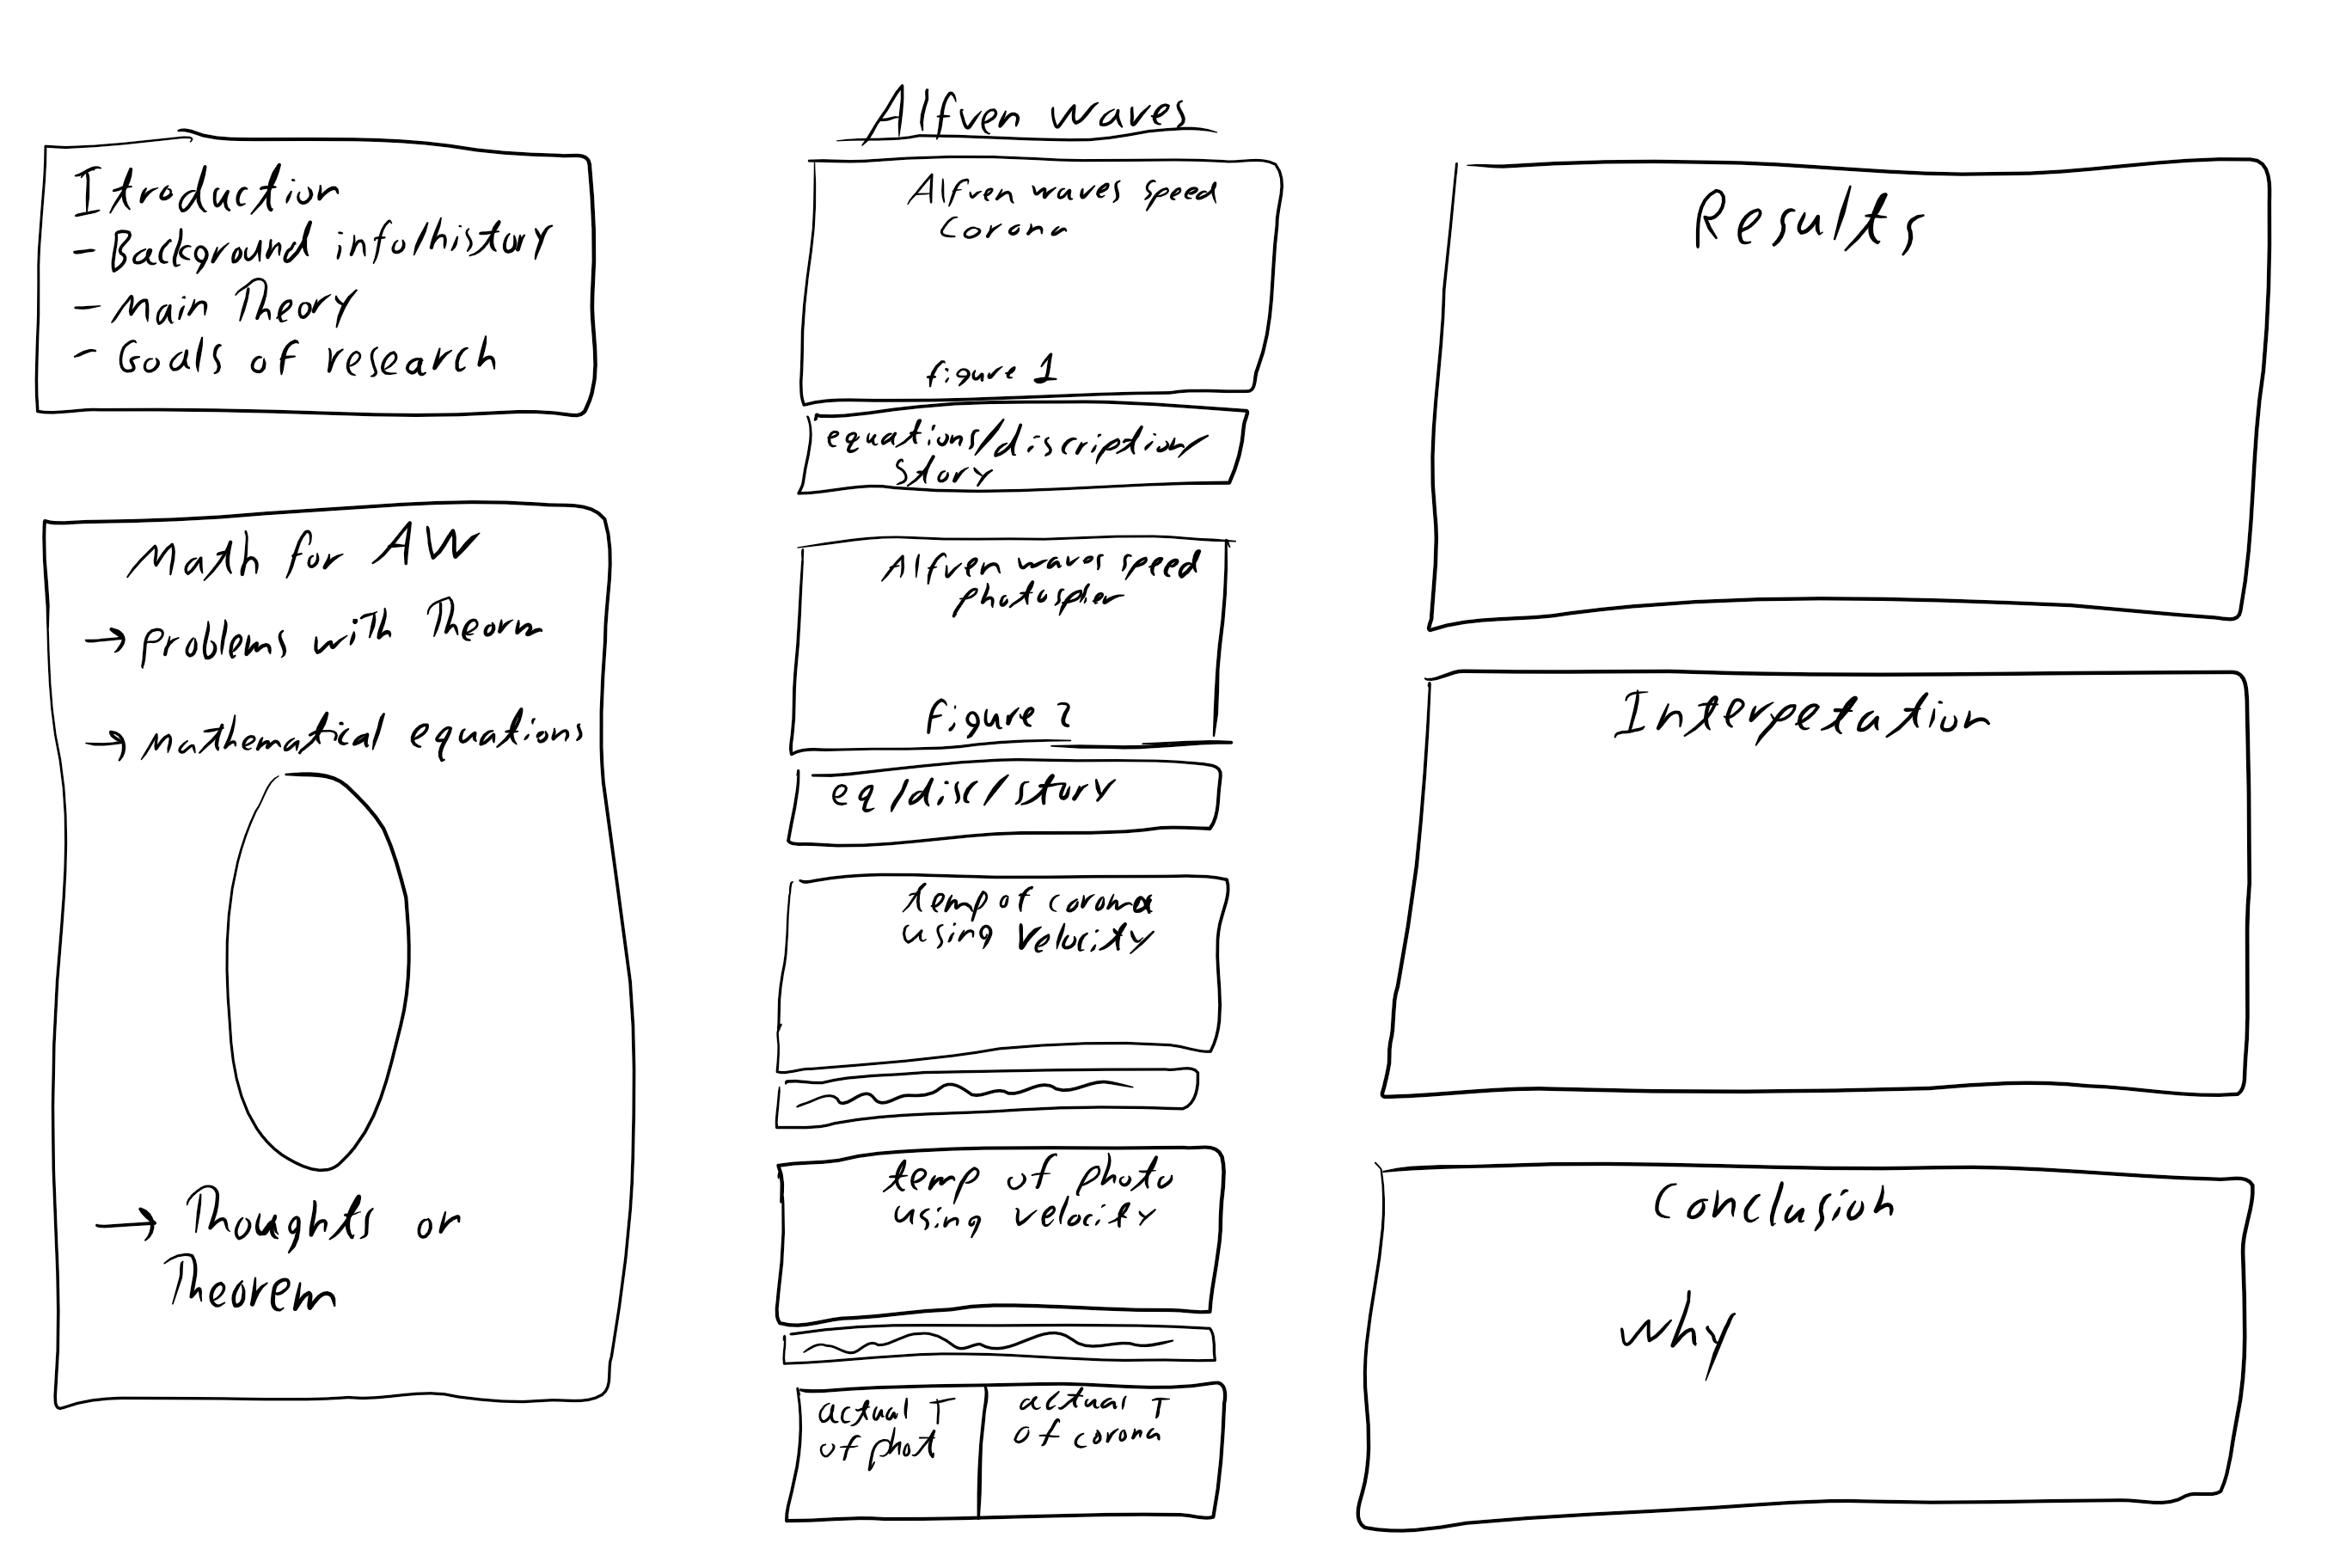 Alfven waves
Itroduction
- Background info/history
- Main Theory
- Goals of research
Math for AW
→ Problems with Theorm
→ Mathematical equations
→ Thoughts or
Theorem
Alfven waves speed
Corona
figure 1
equations/discription/
story
Alfven waves speed
photospher
Figure 2
eq/disc/story
temp of corona
using velocity
temp of photo
using velocity
actual T
of phot
actual T
of corona
Results
Interpetation
Conclusion
why